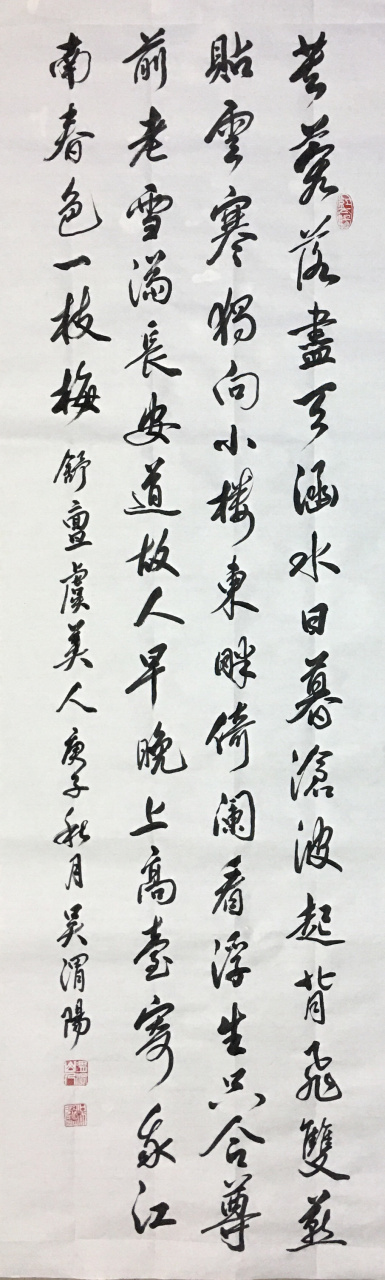 芙蓉落盡天涵水日暮滄波起背飛雙燕
貼雲寒獨向小樓東畔倚闌看浮生只合尊
前老雪滿長安道故人早晚上高臺寄我江
南春色一枝梅 舒亶虞美人 庚子秋月吳渭陽